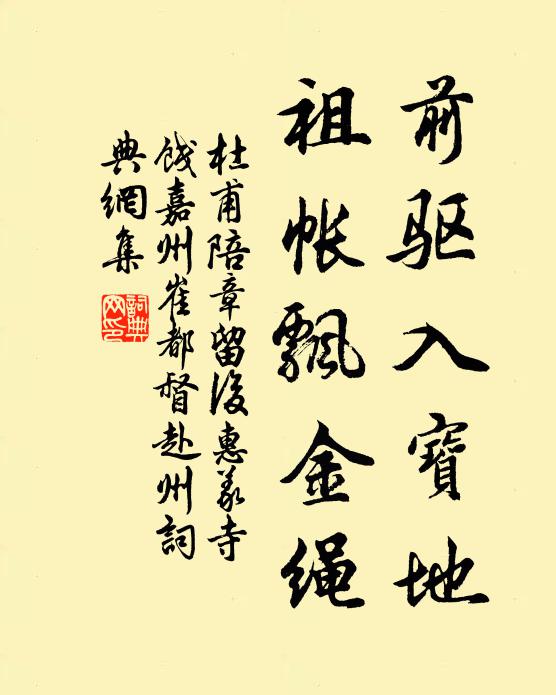 前驱入寶地
祖帐飘金绳
杜甫陪章留後惠义寺
饯嘉州崔都督赴州詞
典網集
詞典
网印